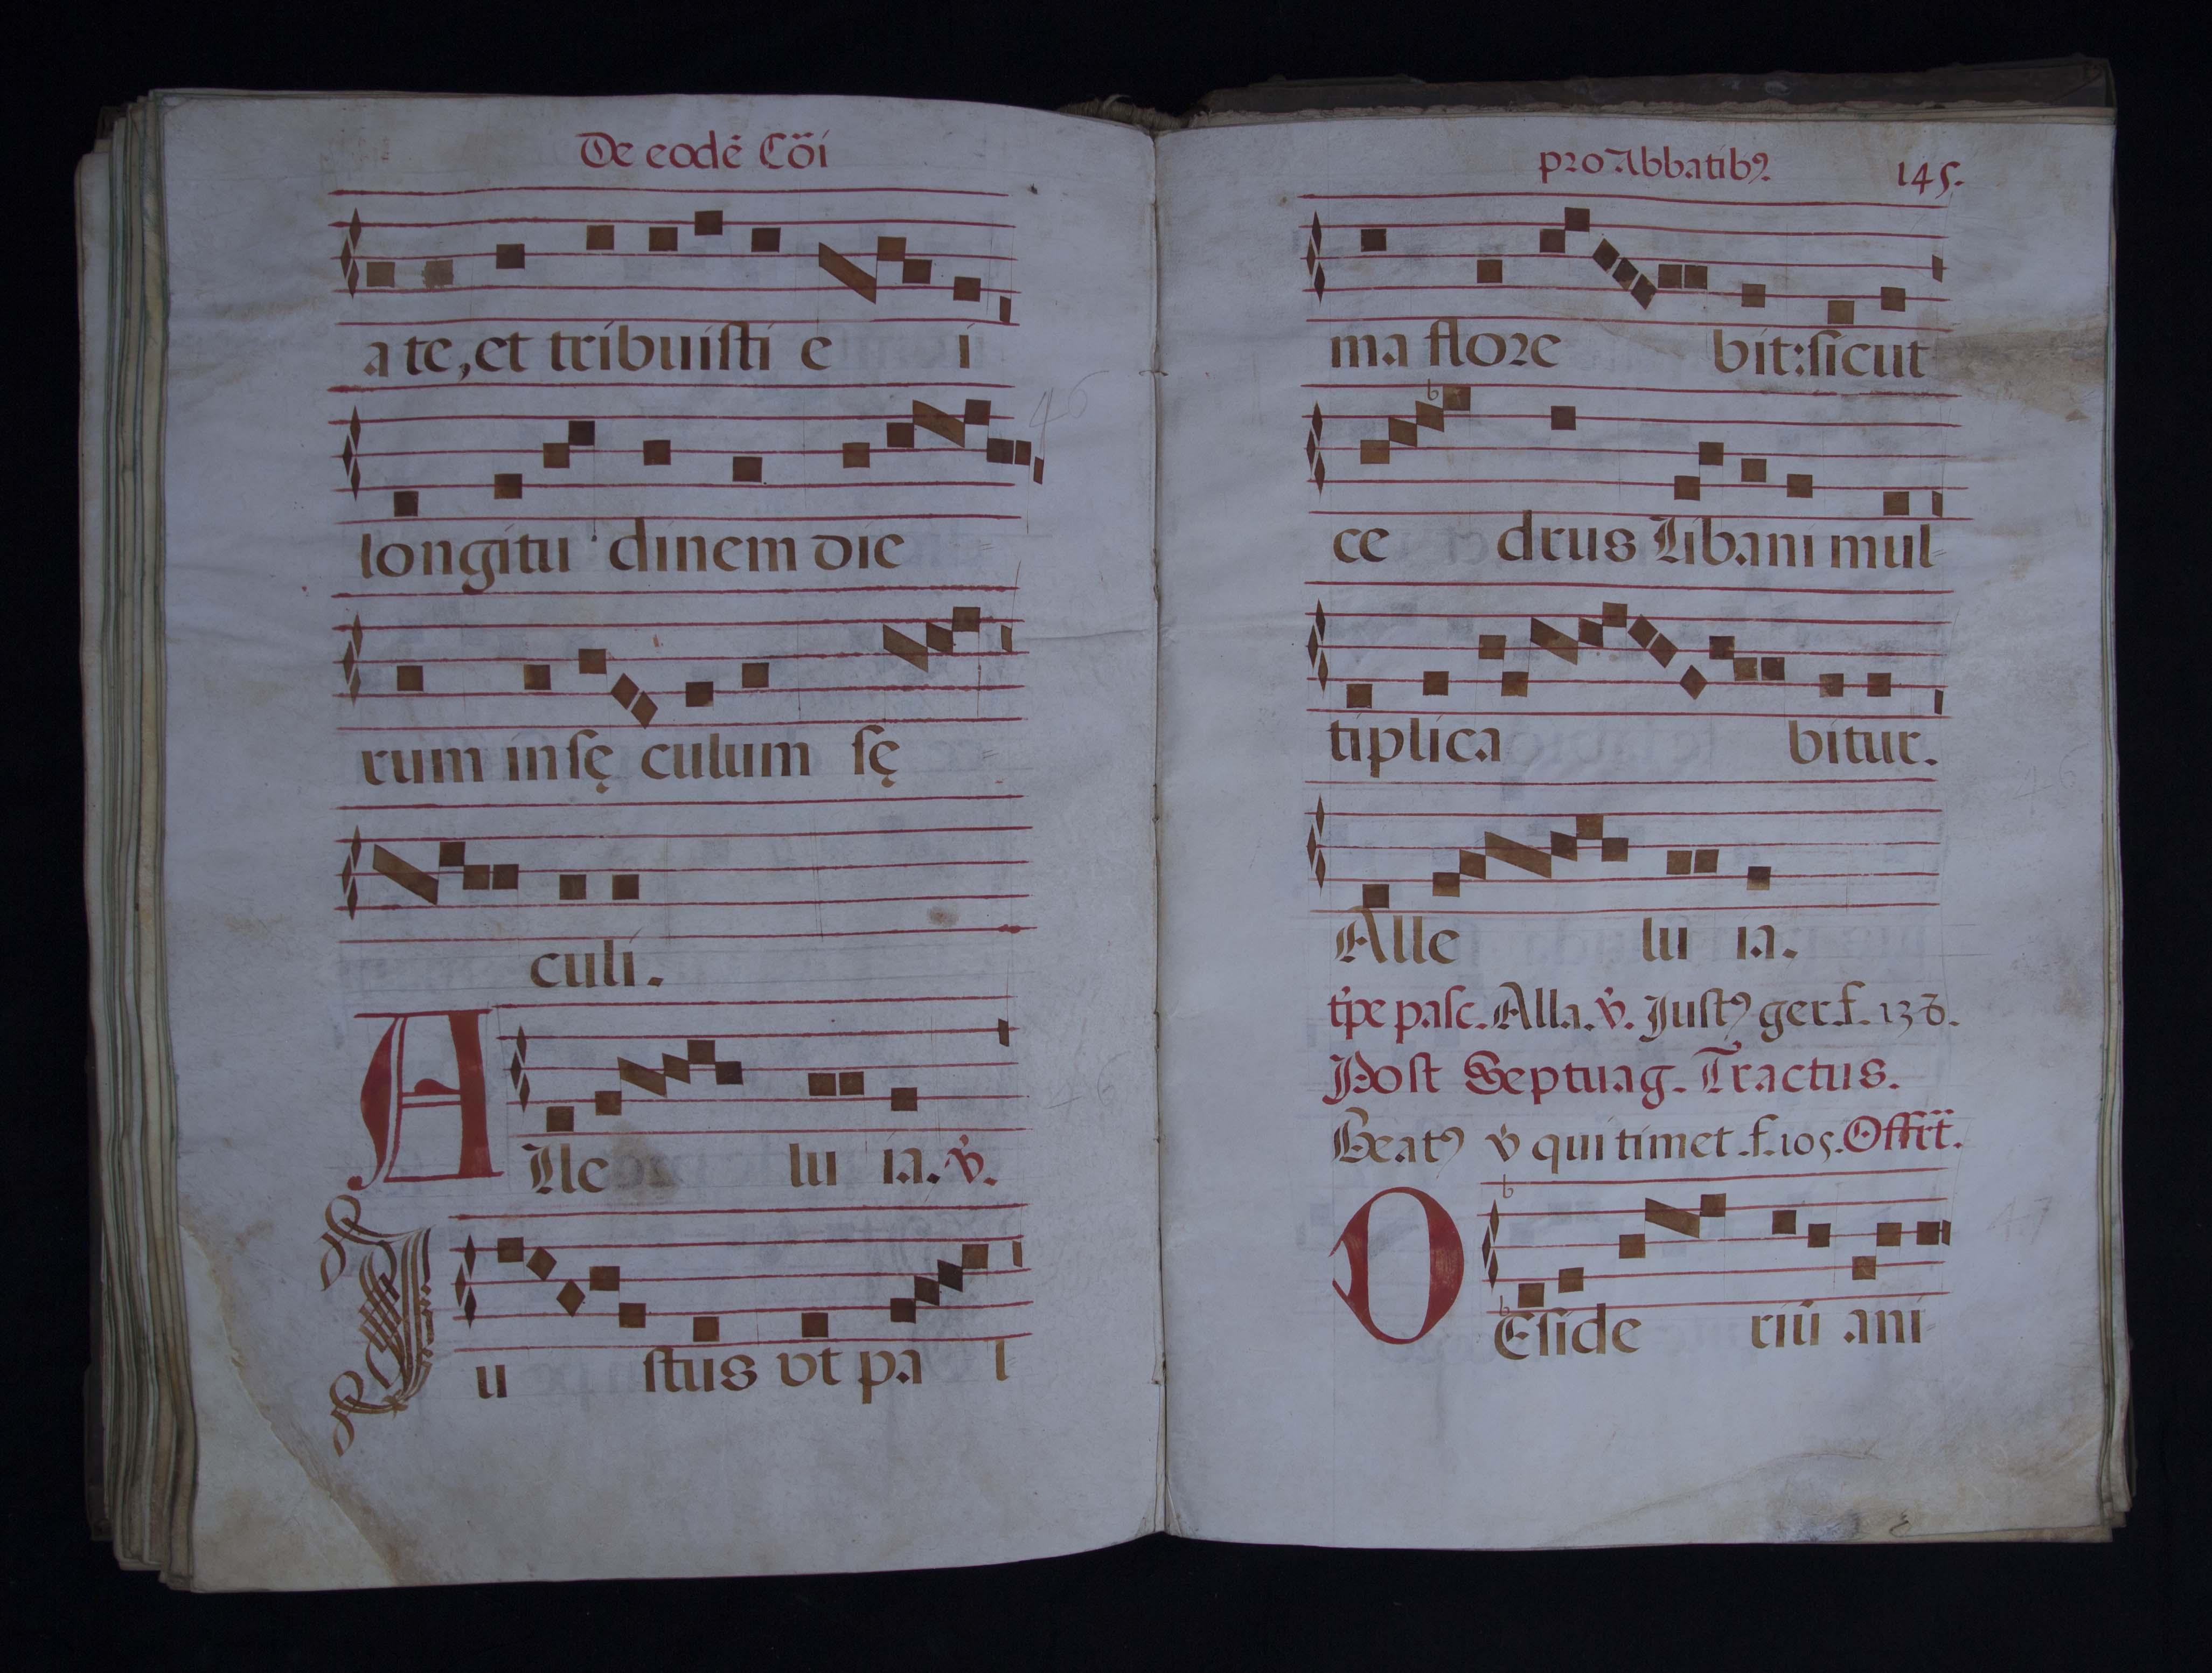 De eodē Cöi
a te, et tribuisti e i
longitu dinem die
rum in sę culum sę
culi.
Alle lu ia. v̇.
Ju stus vt pa l
pro Abbatibꝯ 145.
ma flore bit: sicut
ce drus Libani mul
tiplica bitur.
Alle lu ia.
tp̄e pasc. Alla. v̇. Justꝯ ger. f. 138.
Post Septuag. Tractus.
Beatꝯ v̇ qui timet. f. 105. Offrt̄.
DEside riū ani
46
46
46
47